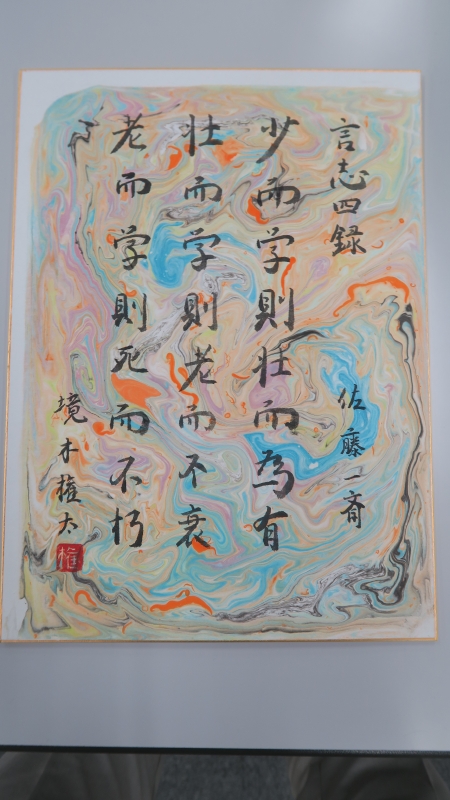 言志四録
佐藤一斎
少而学則壮而為有
壮而学則老而不衰
老而学則死而不朽
境木権太
権